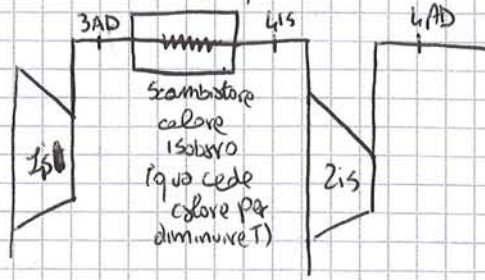 3AD
4is
4AD
Scambiatore
calore
isobaro
(qua cede
calore per
diminuire T)
2is